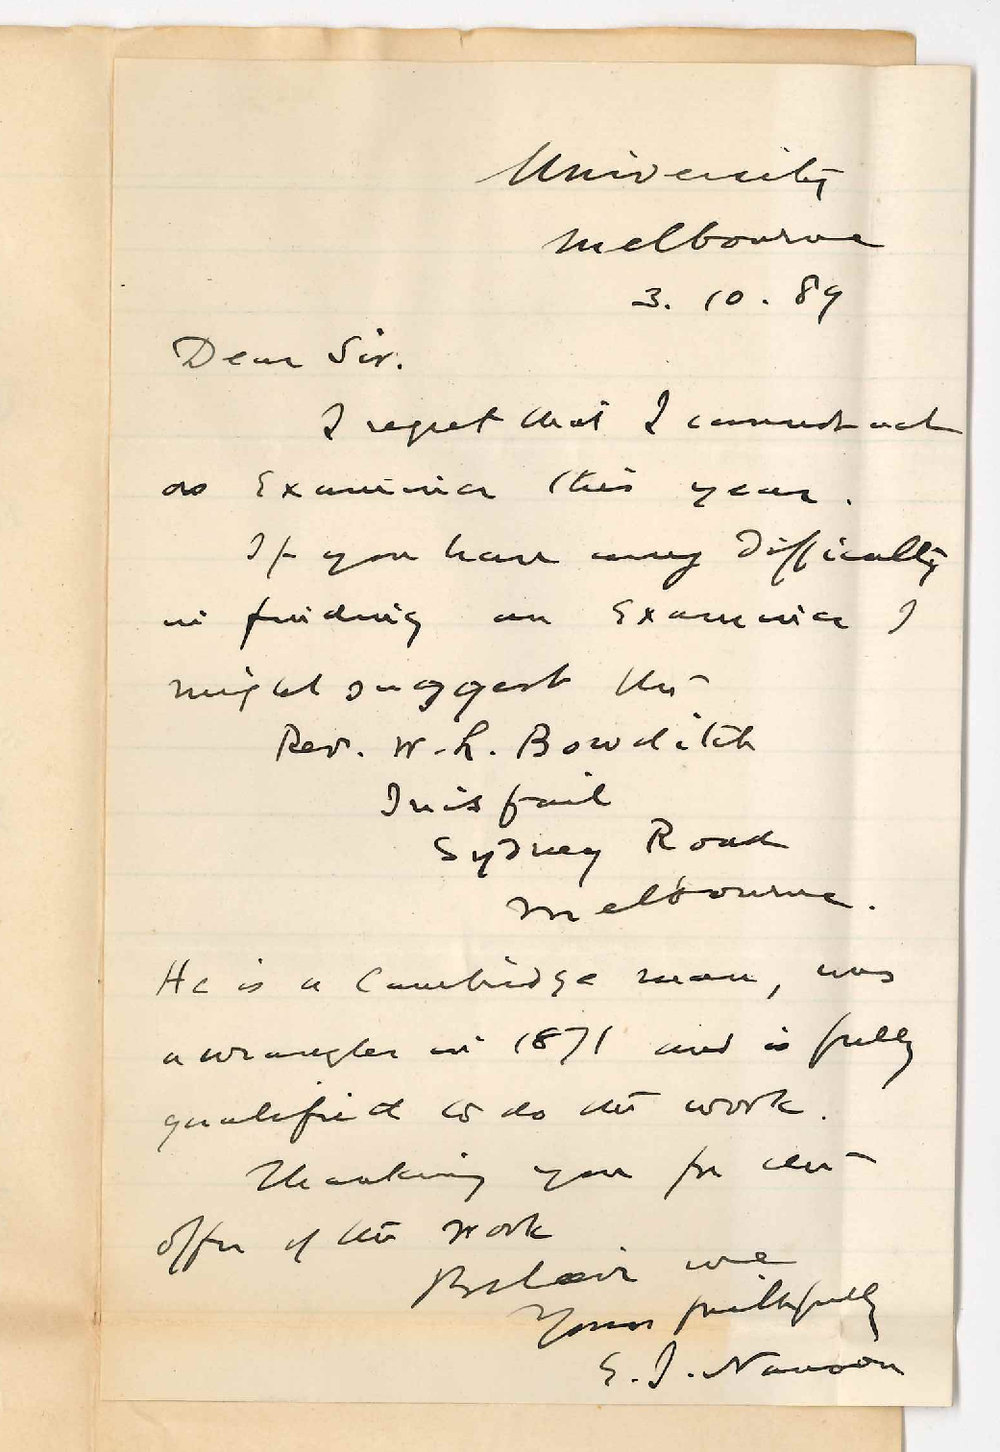 University
Melbourne
3. 10. 89
Dear Sir.
I regret that I cannot act
as Examiner this year.
If you have any difficulty
in finding an Examiner I
might suggest the
Rev. W. L. Bowditch
Inisfail
Sydney Road
Melbourne.
He is a Cambridge man, was
a wrangler in 1871 and is fully
qualified to do the work.
Thanking you for the
offer of the work
Believe me
Yours faithfully
E. J. Nanson